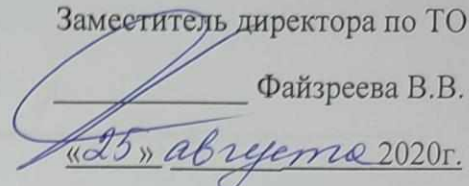 Заместитель директора по ТО
Файзреева В.В.
«25» августа 2020г.